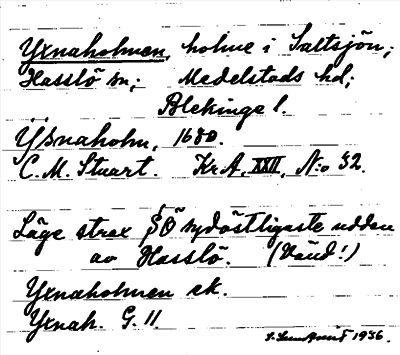 Yxnaholmen, holme i Saltsjön;
Hasslö sn; Medelstads hd;
Blekinge l.
Ÿxnaholm, 1680.
C. M. Stuart. KrA, XXII, N:o 32.
Läge strax SO sydöstligaste udden
av Hasslö. (Vänd!)
Yxnaholmen ek.
Yxnah. G. 11.
1936.